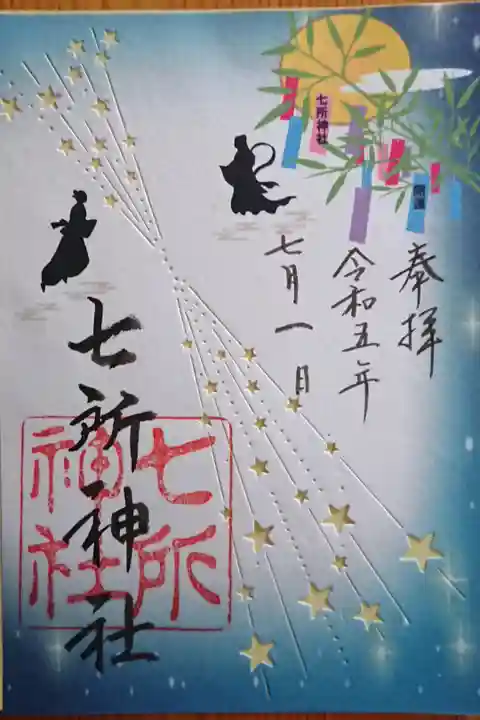 奉拝
令和五年
七月一日
七所神社
七所神社
七所神社